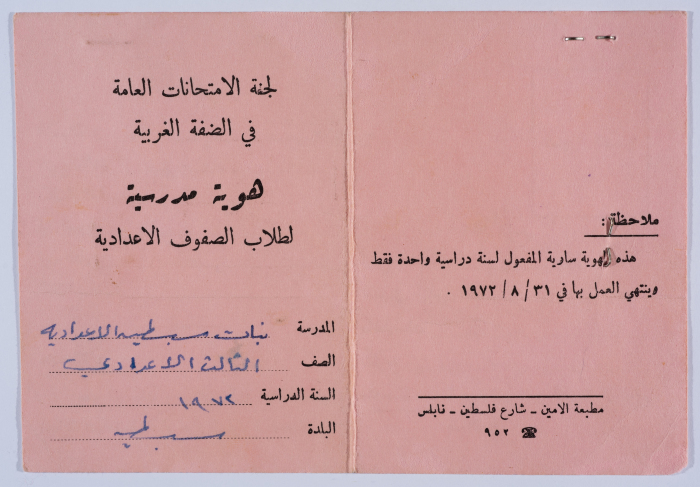 لجنة الامتحانات العامة
في الضفة الغربية
هوية مدرسية
لطلاب الصفوف الاعدادية
المدرسة بنات سبسطيه الاعداديه
الصف الثالث الاعدادي
السنة الدراسية ١٩٧٢
البلدة سبسطيه
ملاحظة :
هذه الهوية سارية المفعول لسنة دراسية واحدة فقط
وينتهي العمل بها في ٣١ / ٨ / ١٩٧٢ .
مطبعة الامين - شارع فلسطين - نابلس
☎ ٩٥٢